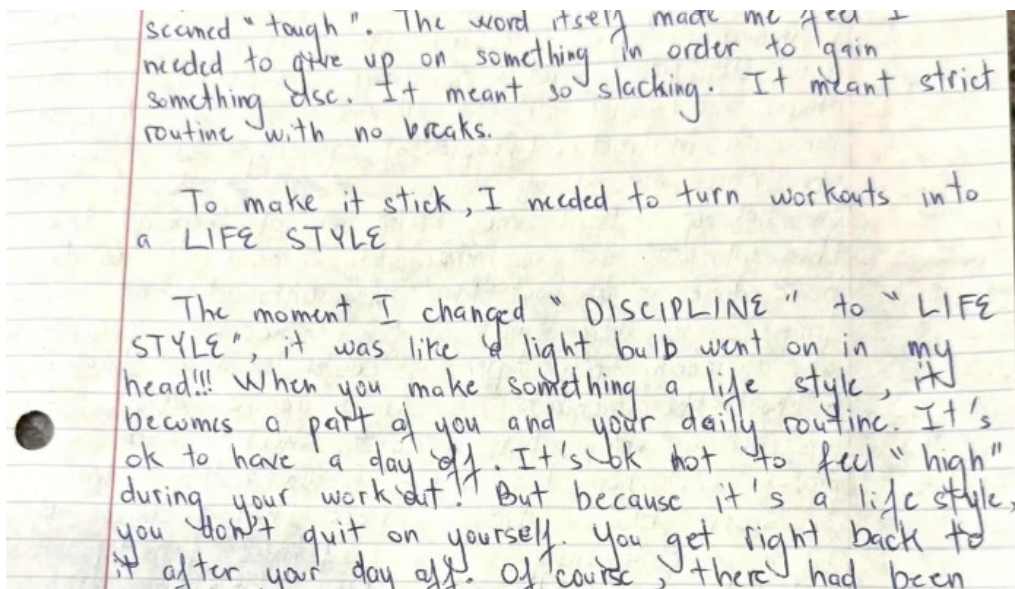 seemed "tough". The word itself made me feel I
needed to give up on something in order to gain
something else. It meant so slacking. It meant strict
routine with no breaks.
To make it stick, I needed to turn workouts into
a LIFE STYLE
The moment I changed "DISCIPLINE" to "LIFE
STYLE", it was like a light bulb went on in my
head!!! When you make something a life style, it
becomes a part of you and your daily routine. It's
ok to have a day off. It's ok not to feel "high"
during your work out!! But because it's a life style,
you don't quit on yourself. You get right back to
it after your day off. Of course, there had been